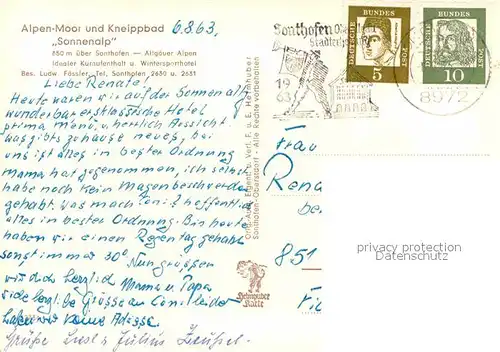 Alpen-Moor und Kneippbad
„Sonnenalp"
850 m über Sonthofen — Allgäuer Alpen
Idealer Kuraufenthalt u. Wintersporthotel
Bes. Ludw. Fässler, Tel. Sonthofen 2630 u. 2631
6.8.63,
Liebe Renate!
Heute waren wir auf der Sonnenalp
wunderbar erstklassische Hotel
prima Menü, u. herrlich Aussicht
was gibts zuhause neues, bei
uns ist alles in bester Ordnung
Mama hat zugenommen, ich selbst
habe noch kein Magenbeschwerden
gehabt. Was macht hoffentlich
alles in bester Ordnung. Bis heute
haben wir einen Regentag gehabt
sonst immer 30° Nun grüssen
wir dich herzlich Mama u. Papa
Grüsse an leider
haben wir keine Adresse.
Grüße Liesl u. Julius
Orig. Aufn. Eigent. u. Verl. F. u. E. Heimhuber
Sonthofen-Oberstdorf - Alle Rechte vorbehalten
Heimhuber
Karte
Sonthofen
1963
DEUTSCHE
BUNDESPOST
5
DEUTSCHE
BUNDESPOST
10
8972
Frau
Rena
be
851
privacy protection
Datenschutz